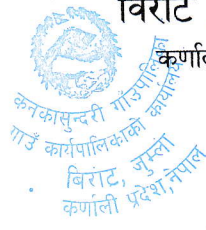 विराट
कर्णा
कनकासुन्दरी गाउँपालिका
गाउँ कार्यपालिकाको कार्यालय
बिराट, जुम्ला
कर्णाली प्रदेश, नेपाल